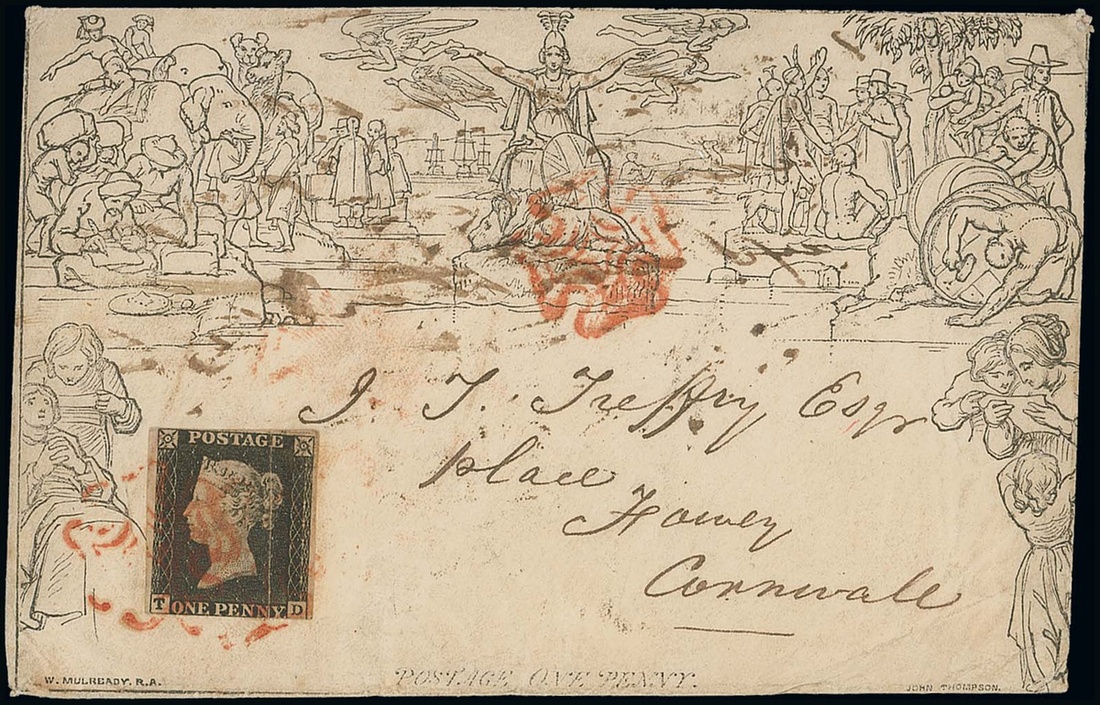 J. T. Treffry Esqr
Place
Fowey
Cornwall
POSTAGE
T ONE PENNY D
POSTAGE ONE PENNY.
W. MULREADY. R.A.
JOHN THOMPSON.